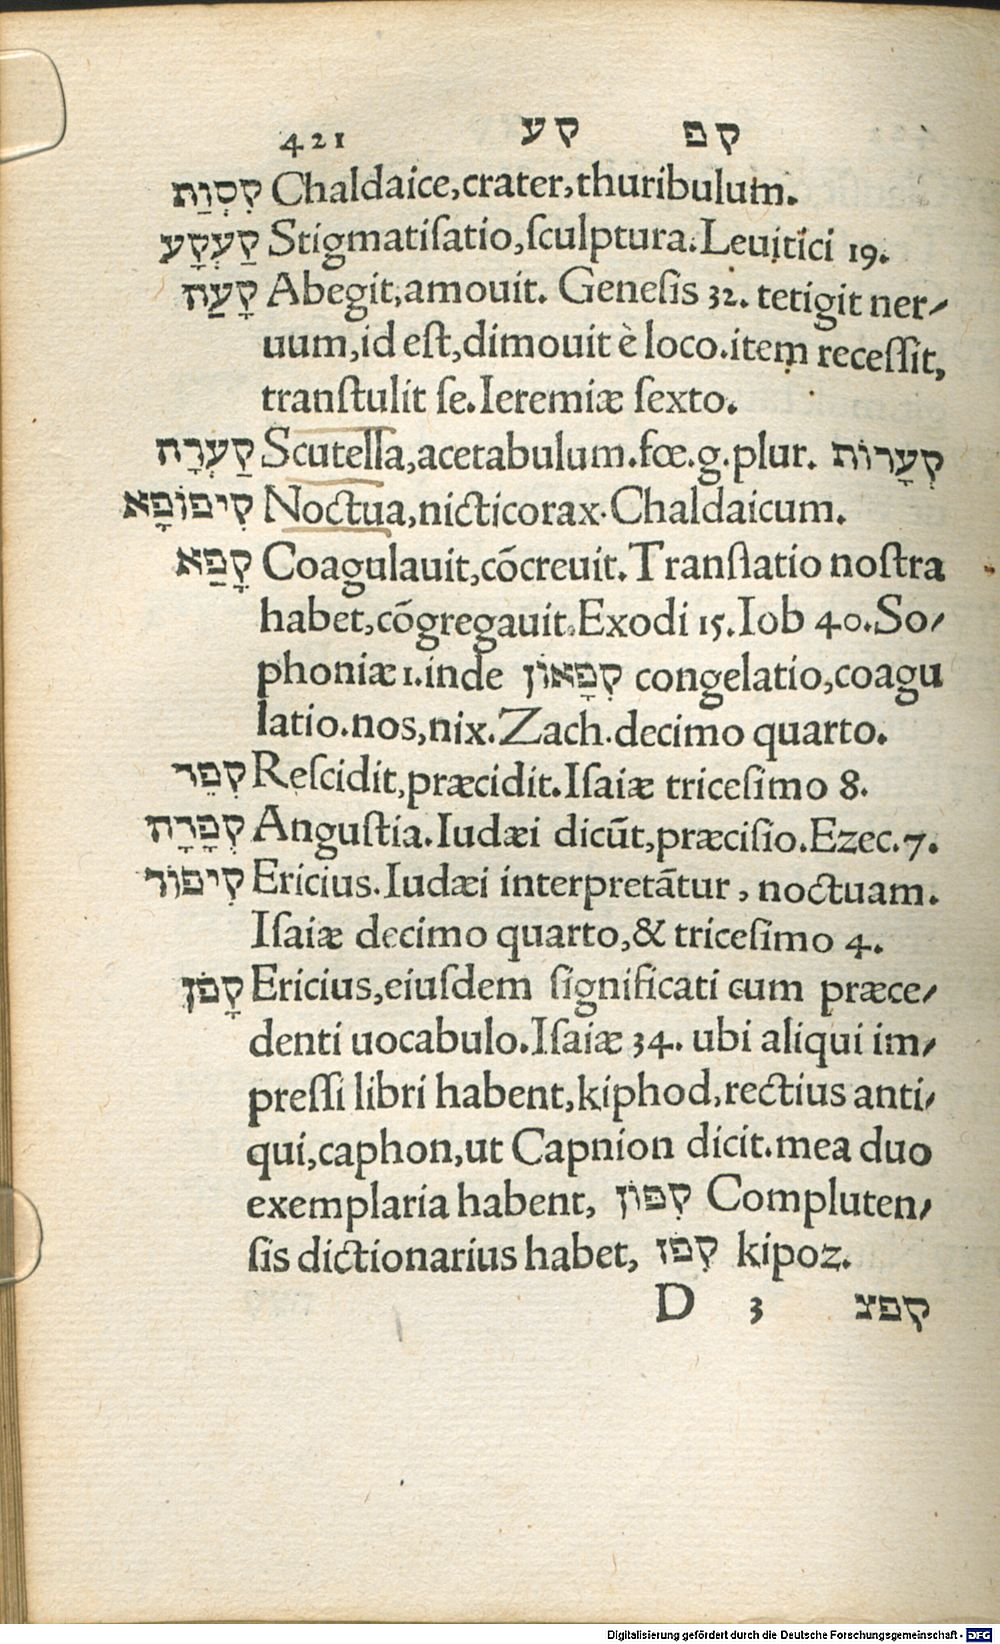 421 קע קפ
קִסְוַת Chaldaice,crater,thuribulum.
קַעְקָע Stigmatiſatio,ſculptura.Leuitici 19.
קָעַה Abegit,amouit. Geneſis 32. tetigit ner-
uum,id eſt,dimouit è loco.item receſſit,
tranſtulit ſe.Ieremiæ ſexto.
קַעְרָה Scutella,acetabulum.fœ.g.plur. קְעָרוֹת
קִיפוֹפָא Noctua,nicticorax.Chaldaicum.
קָפַא Coagulauit,cōcreuit.Tranſlatio noſtra
habet,cōgregauit.Exodi 15.Iob 40.So-
phoniæ 1.inde קִפָּאוֹן congelatio,coagu
latio.nos,nix.Zach.decimo quarto.
קִפֵּר Reſcidit,præcidit.Iſaiæ triceſimo 8.
קְפָרָה Anguſtia.Iudæi dicūt,præciſio.Ezec.7.
קִיפוֹר Ericius.Iudæi interpretātur, noctuam.
Iſaiæ decimo quarto,& triceſimo 4.
קָפֹן Ericius,eiuſdem ſignificati cum præce-
denti uocabulo.Iſaiæ 34. ubi aliqui im-
preſſi libri habent,kiphod,rectius anti-
qui,caphon,ut Capnion dicit.mea duo
exemplaria habent, קִפּוֹן Compluten-
ſis dictionarius habet, קִפֹּז kipoz.
D 3 קפצ
Digitalisierung gefördert durch die Deutsche Forschungsgemeinschaft - DFG